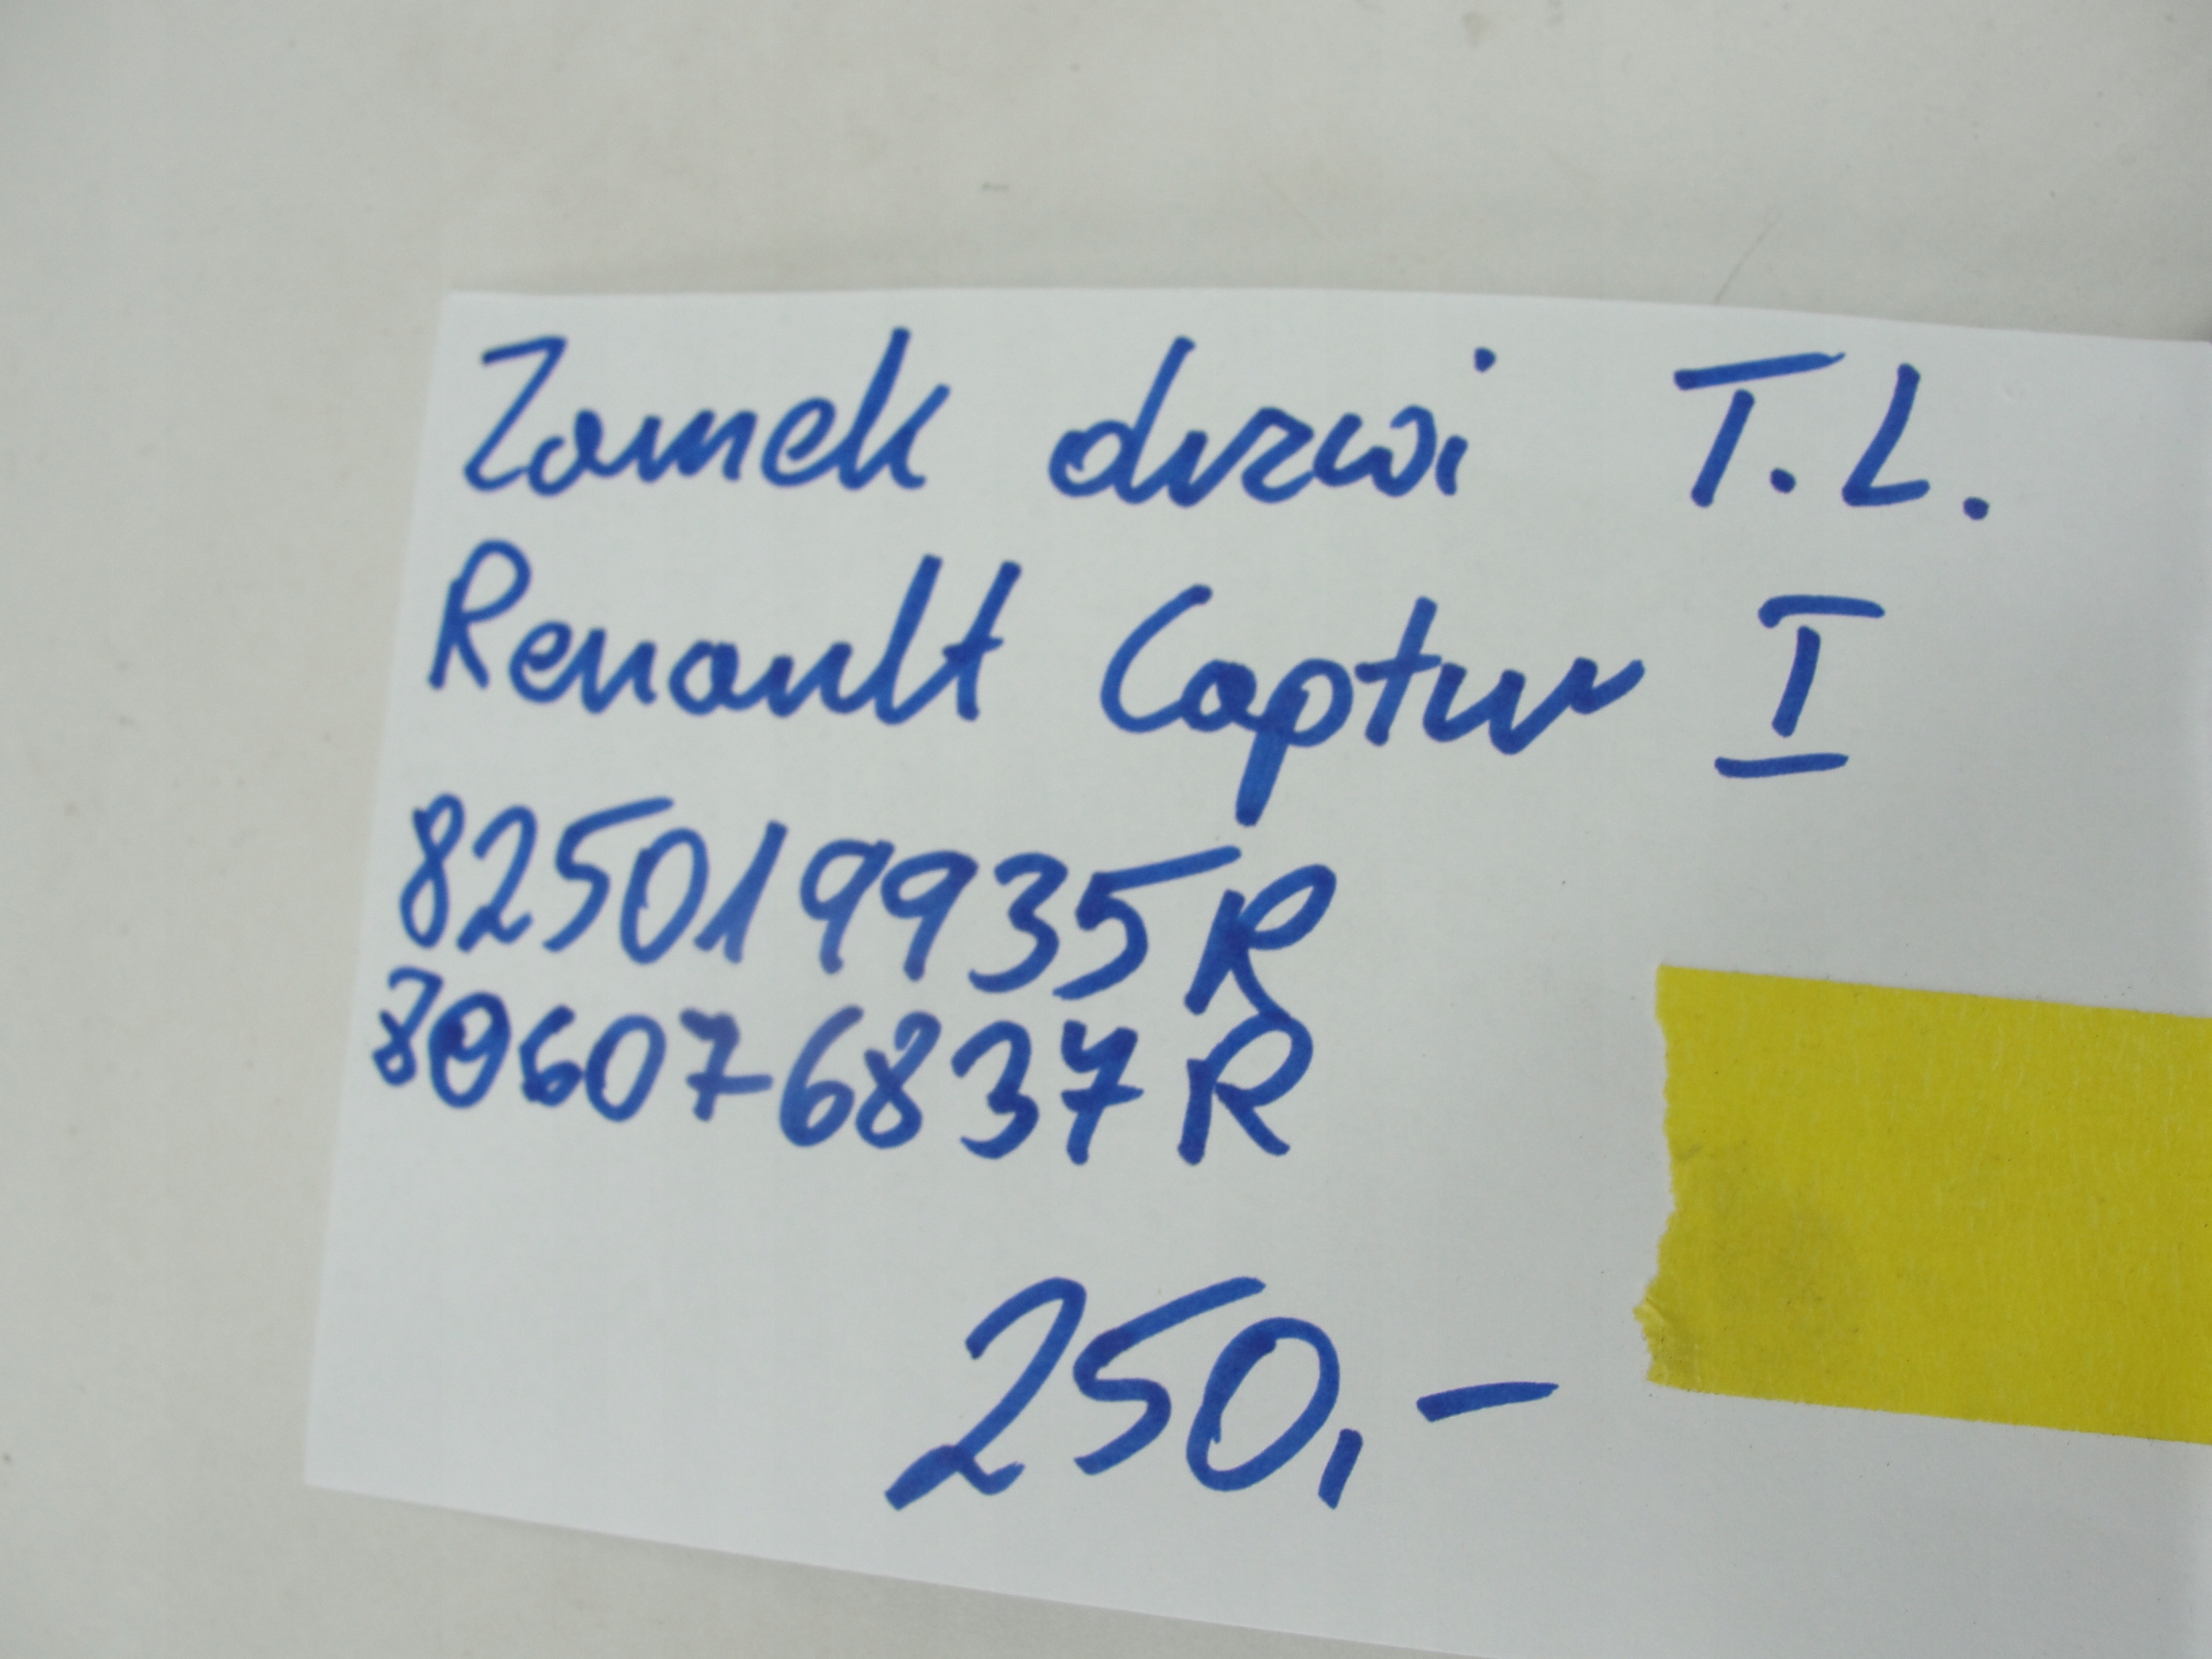 Zamek drzwi T.L.
Renault Captur I
825019935R
806076837R
250,-